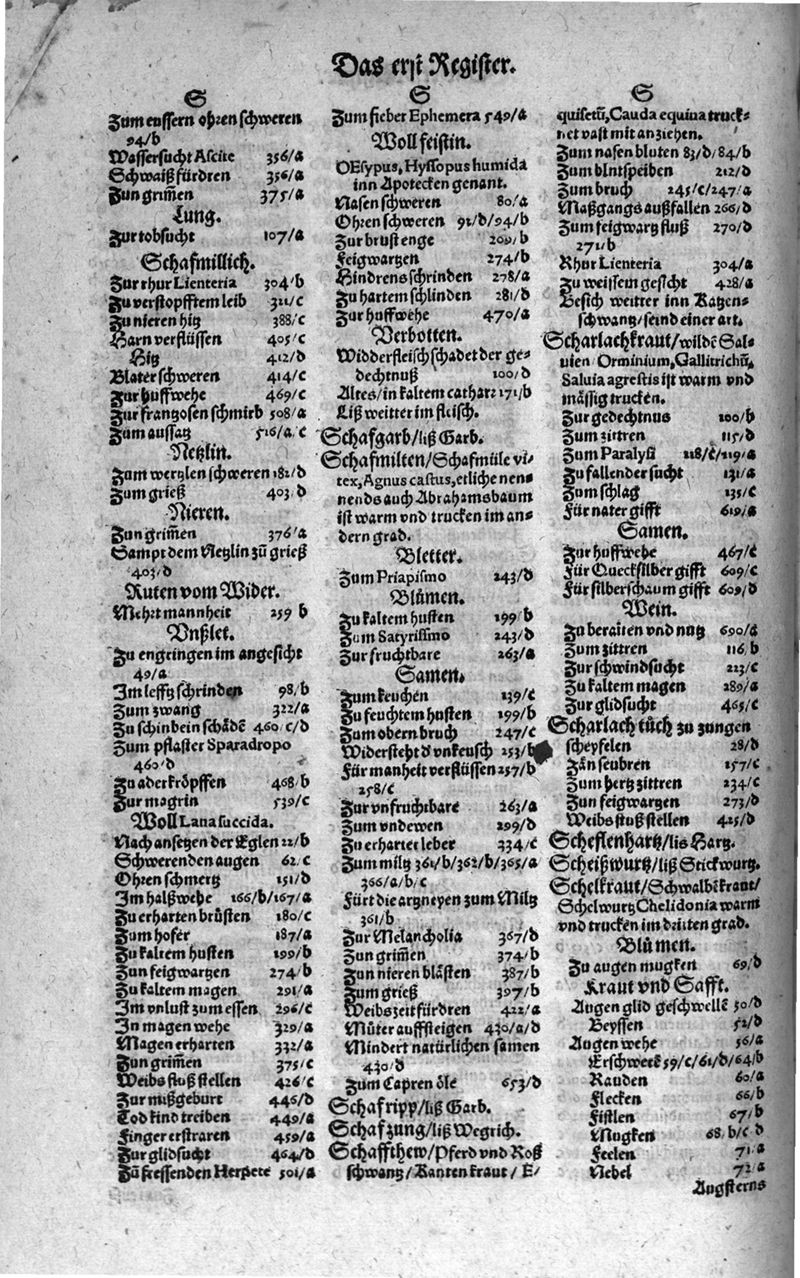 Das erst Register.
S
Zum eussern ohren schweren
94/b
Wassersucht Ascite 356/a
Schweiß fürdren 356/a
Zun grim̃en 375/a
Lung.
Zur tobsucht 107/a
Schafmillich.
Zur rhur Lienteria 304/b
Zu verstopfftem leib 321/c
Zu nieren hitz 388/c
Harn verflüssen 405/c
Hitz 412/d
Blater schweren 414/c
Zur huffwehe 469/c
Zur frantzosen schmirb 508/a
Zum aussatz 516/a/c
Netzlin.
Zum wertzlen schweren 182/d
Zum grieß 403/d
Nieren.
Zun grim̃en 376/a
Sampt dem Netzlin zů grieß
403/d
Ruten vom Wider.
Mehrt mannheit 259/b
Vnßlet.
Zu engringen im angesicht
49/a
Im lefftz schrinden 98/b
Zum zwang 322/a
Zu schinbein schädē 460/c/d
Zum pflaster Sparadropo
460/d
Zu aderkröpffen 468/b
Zur magrin 539/c
Woll Lana succida.
Nach ansetzen der Eglen 22/b
Schwerenden augen 62/c
Ohren schmertz 151/d
Im halßwehe 166/b/167/a
Zu erharten brüsten 180/c
Zum hofer 187/a
Zu kaltem husten 199/b
Zun feigwartzen 274/b
Zu kaltem magen 291/a
Im vnlust zum essen 296/c
In magen wehe 329/a
Magen erharten 332/a
Zun grim̃en 375/c
Weibs fluß stellen 426/c
Zur mißgeburt 446/d
Tod kind treiben 449/a
Finger erstraren 459/a
Zur glidsucht 464/d
Zů fressenden Herpete 501/a
S
Zum fieber Ephemera 549/a
Woll feistin.
OEsypus, Hyssopus humida
inn Apotecken genant.
Nasen schweren 80/a
Ohren schweren 91/d/94/b
Zur brust enge 209/b
Feigwartzen 274/b
Hindrens schrinden 278/a
Zu hartem schlinden 281/d
Zur huffwehe 470/a
Verbotten.
Widderfleisch schadet der ge-
dechtnuß 100/d
Altes/in kaltem catharr 171/b
Liß weitter im fleisch.
Schafgarb/liß Garb.
Schafmilten/Schafmüle vi-
tex, Agnus castus, etliche nen-
nends auch Abrahamsbaum
ist warm vnd trucken im an-
dern grad.
Bletter.
Zum Priapismo 243/d
Blůmen.
Zu kaltem husten 199/b
Zum Satyrismo 243/d
Zur fruchtbare 263/a
Samen.
Zum keuchen 139/c
Zu feuchtem husten 199/b
Zum obern bruch 247/c
Widersteht d vnkeusch 253/b
Für manheit verflüssen 257/b
258/c
Zur vnfruchtbare 263/a
Zum vndewen 299/d
Zu erhartet leber 334/c
Zum miltz 361/b/362/b/365/a
366/a/b/c
Fürt die artzneyen zum Miltz
361/b
Zur Melancholia 367/d
Zun grim̃en 374/b
Zun nieren blästen 387/b
Zum grieß 397/b
Weibs zeit fürdren 422/a
Můter auffsteigen 430/a/d
Mindert natürlichen samen
430/d
Zum Capren öle 653/d
Schafripp/liß Garb.
Schafzung/liß Wegrich.
Schaffthew/Pferd vnd Roß
schwantz/Kanten kraut/E-
S
quisetū, Cauda equina truck-
net vast mit anziehen.
Zum nasen bluten 83/d/84/b
Zum blutspeiben 212/d
Zum bruch 245/c/247/a
Maßgangs außfallen 266/d
Zum feigwartz fluß 270/d
271/b
Rhur Lienteria 304/a
Zu weissem gesicht 428/a
Besich weitter inn Katzen-
schwantz/seind einer art.
Scharlachkraut/wildē Sal-
uien Orminium, Gallitrichū,
Saluia agrestis ist warm vnd
mässig trucken.
Zur gedechtnus 100/b
Zum zittren 115/d
Zum Paralysi 118/c/119/a
Zu fallender sucht 131/a
Zum schlag 135/c
Für nater gifft 619/a
Samen.
Zur huffwehe 467/c
Für Quecksilber gifft 609/c
Für silberschaum gifft 609/d
Wein.
Zu beraiten vnd nutz 690/a
Zum zittren 116/b
Zur schwindsucht 223/c
Zu kaltem magen 289/a
Zur glidsucht 465/c
Scharlach tůch zu zungen
scheyfelen 28/d
Zän seubren 157/c
Zum hertz zittren 234/c
Zun feigwartzen 273/d
Weibs fluß stellen 425/d
Scheflenhartz/lis Hartz.
Scheißwurtz/liß Stickwurtz.
Schelkraut/Schwalbēkraut/
Schelwurtz Chelidonia warm
vnd trucken im dritten grad.
Blůmen.
Zu augen mugken 69/d
Kraut vnd Safft.
Augen glid geschwellē 50/d
Beyssen 52/d
Augen wehe 56/a
Erschwerē 59/c/61/d/64/b
Rauden 60/a
Flecken 66/b
Fistlen 67/b
Mugken 68/b/c/d
Feelen 71/a
Nebel 72/a
Augsterns